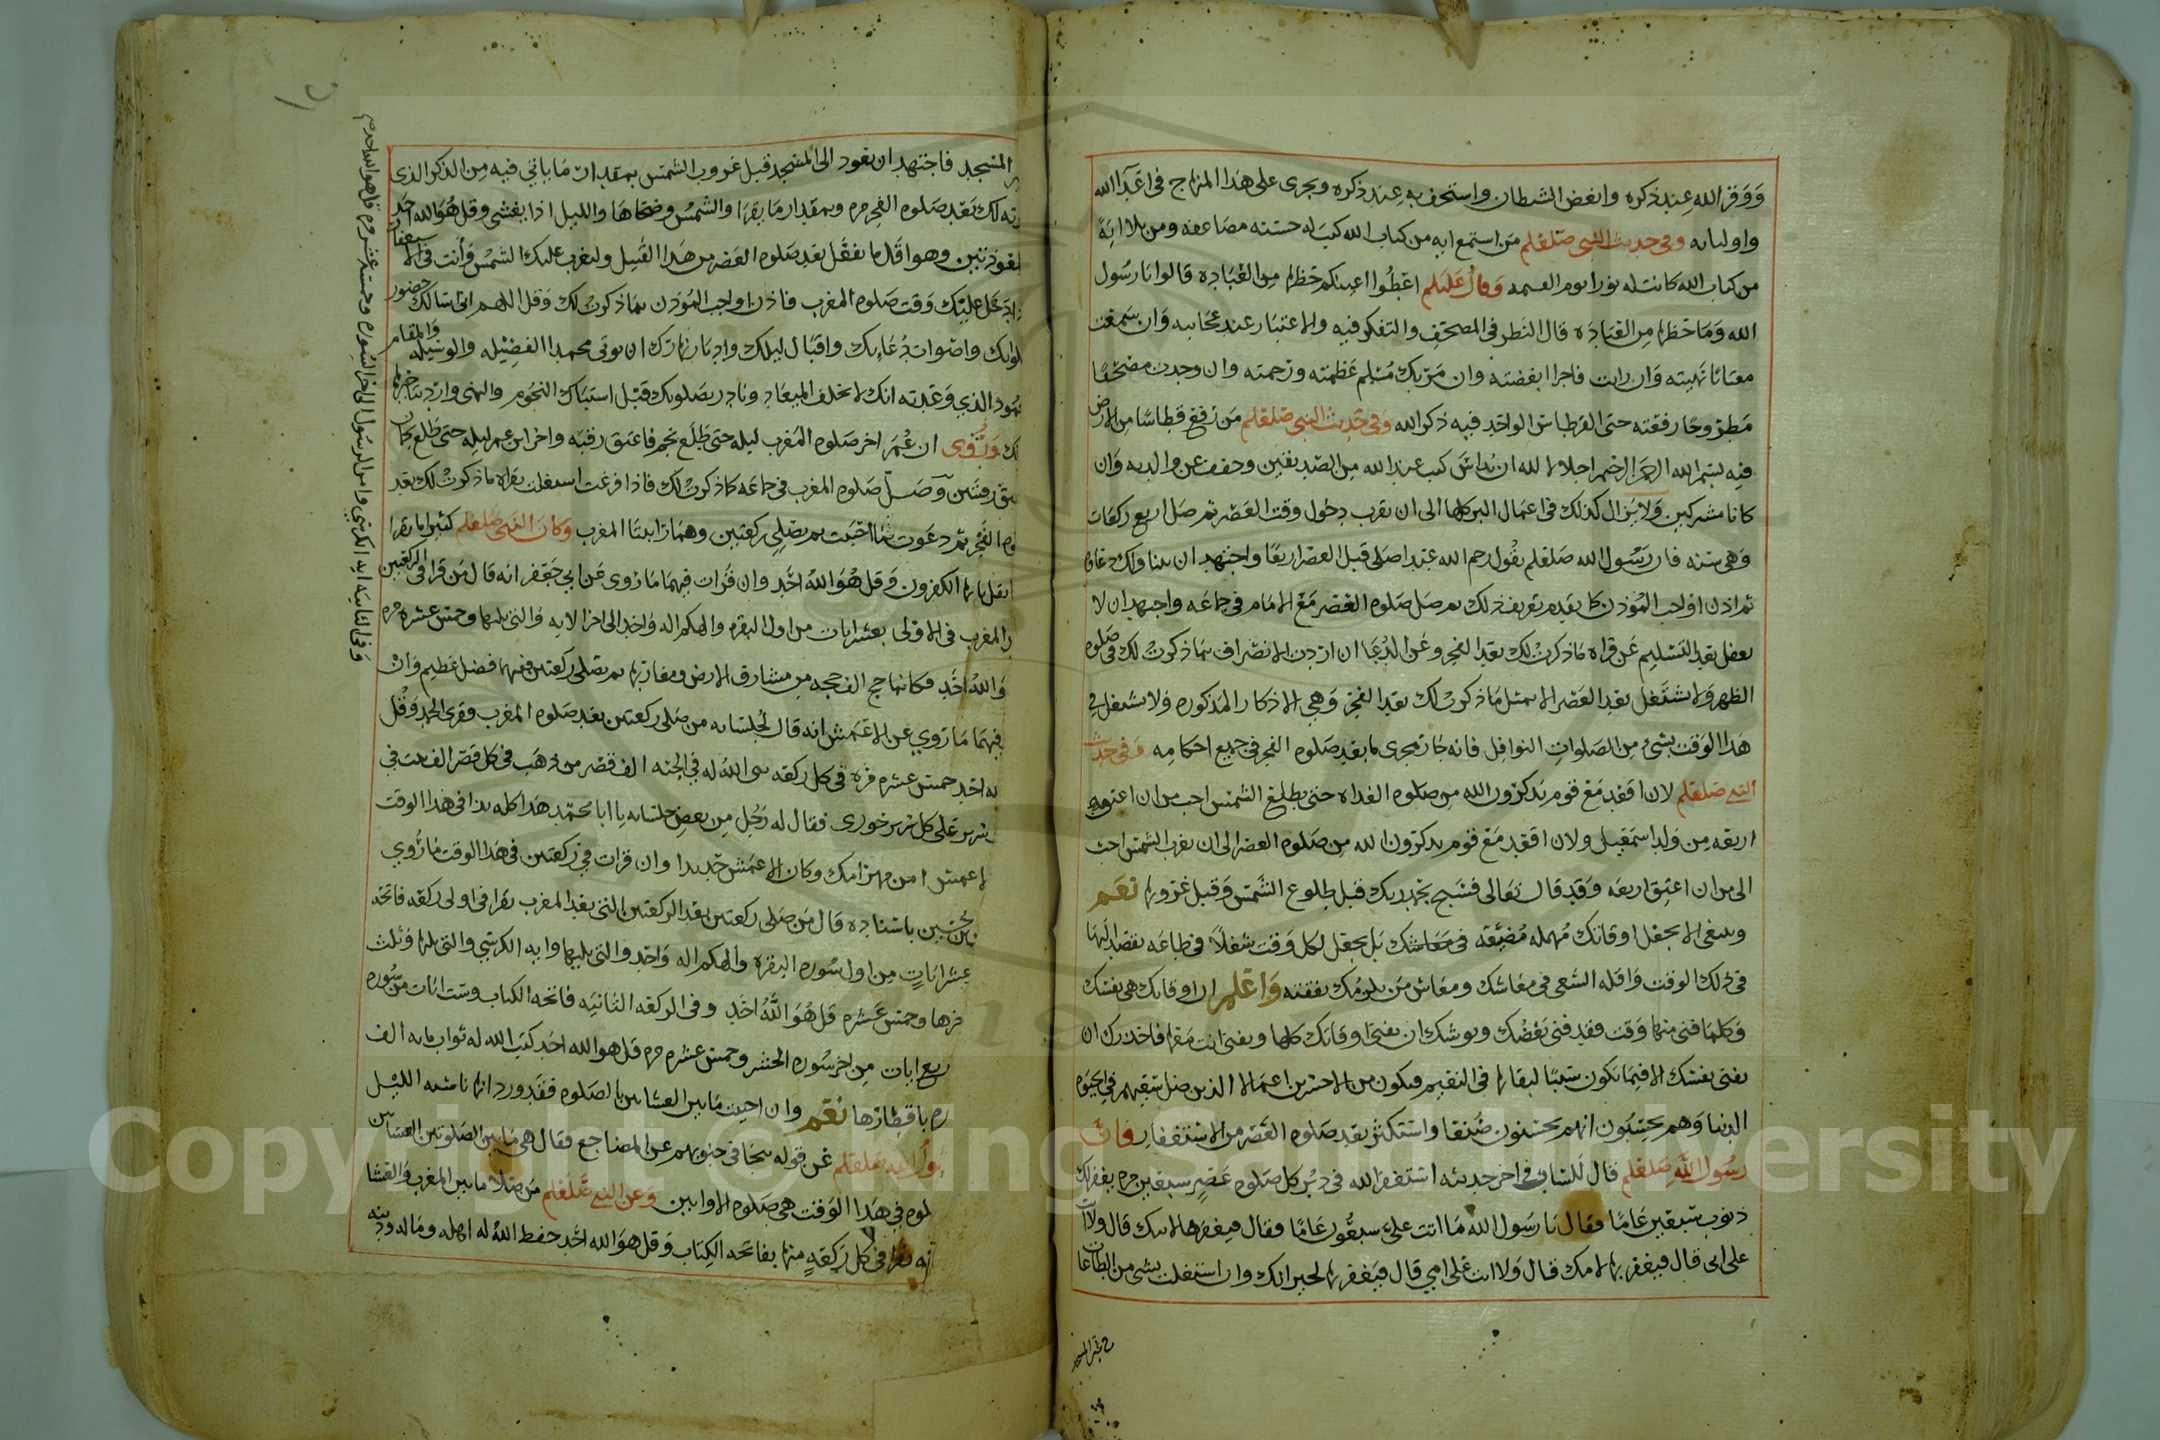 ووقر الله عند ذكره وابغض الشيطان واستخف به عند ذكره ويجرى على هذا المزاج فى اعداء الله
واوليائه وفى حديث النبى صلعلم من استمع ايه من كتاب الله كتب له حسنه مضاعفه ومن تلا ايةً
من كتاب الله كانت له نورا يوم القيمه وقال عليلم اعطوا اعينكم حظها من العبادة قالوا يا رسول
الله وما حظها من العبادة قال النظر فى المصحف والتفكر فيه والاعتبار عند عجائبه وان سمعت
مغتابا نهيته وان رايت فاجرا ابغضته وان مر بك مسلم عظمته ورحمته وان وجدت مصحفا
مطروحا رفعته حتى القرطاس الواحد فيه ذكر الله وفى حديث النبى صلعلم من رفع قرطاسا من الارض
فيه بسم الله الرحمن الرحيم اجلالا لله ان يداس كتب عند الله من الصديقين وخفف عن والديه وان
كانا مشركين ولا تزال كذلك فى اعمال البر كلها الى ان يقرب دخول وقت العصر ثم صل اربع ركعات
وهى سنه فان رسول الله صلعلم يقول رحم الله عبدا صلى قبل العصر اربعا واجتهد ان ينالك دعاؤه
ثم اذن او اجب المؤذن كما تقدم تعريف ذلك ثم صل صلوه العصر مع الامام فى جماعه واجتهد ان لا
تغفل بعد التسليم عن قراه ما ذكرت لك بعد الفجر وعن الدعا ان اردت الانصراف بما ذكرت لك فى صلوه
الظهر ولا تشتغل بعد العصر الا بمثل ما ذكرت لك بعد الفجر وهى الاذكار المذكوره ولا تشتغل فى
هذا الوقت بشئ من الصلوات النوافل فانه جار مجرى ما بعد صلوه الفجر فى جميع احكامه وفى حديث
النبى صلعلم لان اقعد مع قوم يذكرون الله من صلوه الغداه حتى يطلع الشمس احب من ان اعتق
اربعه من ولد اسمعيل ولان اقعد مع قوم يذكرون الله من صلوه العصر الى ان تغرب الشمس احب
الى من ان اعتق اربعه وقد قال تعالى فسبح بحمد ربك قبل طلوع الشمس وقبل غروبها نعم
وينبغى الا يجعل اوقاتك مهمله مضيعه فى معاشك بل يجعل لكل وقت شغلا فى طاعه يقصد اليها
فى ذلك الوقت واقله السعى فى معاشك ومعاش من يلزمك نفقته واعلم ان اوقاتك هى نفسك
وكلما فنى منها وقت فقد فنى بعضك ويوشك ان تفنى اوقاتك كلها وتفنى انت معها فاحذرك ان
تفنى نفسك الا فيما يكون سببا لبقائها فى النعيم فتكون من الاخسرين اعمالا الذين ضل سعيهم فى الحيوه
الدنيا وهم يحسبون انهم يحسنون صنعا واستكثر بعد صلوه العصر من الاستغفار فان
رسول الله صلعلم قال للشاب فى اخر حديثه استغفر الله فى دبر كل صلوه عصر سبعين مره يغفر لك
ذنوب سبعين عاما فقال يا رسول الله ما اتت على سبعون عاما فقال فيغفرها لابيك قال ولا اتت
على ابى قال فيغفر بها لامك قال ولا اتت على امى قال فيغفر بها لجيرانك وان اشتغلت بشئ من الطاعات
المسجد فاجتهد ان تعود الى المسجد قبل غروب الشمس بمقدار ما ياتى فيه من الذكر الذى
لك بعد صلوه الفجر مره وبمقدار ما يقرا والشمس وضحاها والليل اذا يغشى وقل هو الله احد
وهو اقل ما يفعل بعد صلوه العصر من هذا القبيل ولتغرب عليك الشمس وانت فى الاستغفار
وقت صلوه المغرب فاذن او اجب المؤذن بما ذكرت لك وقل اللهم انى اسالك حضور
واصوات دعائك واقبال ليلك وادبار نهارك ان توتى محمدا الفضيله والوسيله والمقام
الذى وعدته انك لا تخلف الميعاد وبادر بصلوتك قبل اشتباك النجوم
وروى ان عمر اخر صلوه المغرب ليله حتى طلع نجم فاعتق رقبه واخر ابن عمر ليله حتى طلع نجمان
وصل صلوه المغرب فى جماعه كما ذكرت لك فاذا فرغت اشتغلت بقراه ما ذكرت لك بعد
الفجر ثم دعوت بما احببت ثم تصلى ركعتين وهما راتبتا المغرب وكان النبى صلعلم كثيرا ما يقرا
قل يا ايها الكفرون وقل هو الله احد وان قرات فيهما ما روى عن ابى جعفر انه قال من قرا فى الركعتين
المغرب فى الاولى بعشر ايات من اول البقره والهكم اله واحد الى اخر الايه والتى تليها وخمس عشره مره
الله احد فكانما حج الف حجه من مشارق الارض ومغاربها ثم تصلى ركعتين ففيهما فضل عظيم وان
فيهما ما روي عن الاعمش انه قال لجلسائه من صلى ركعتين بعد صلوه المغرب وقرى الحمد وقل
احد خمس عشره مره فى كل ركعه بنى الله له فى الجنه الف قصر من ذهب فى كل قصر الف بيت فى
على كل سرير حورى فقال له رجل من بعض جلسائه يا ابا محمد هذا كله بنا فى هذا الوقت
وكان الاعمش حديدا وان قرات فى ركعتين فى هذا الوقت ما روي
باسناده قال من صلى ركعتين بعد الركعتين التى بعد المغرب يقرا فى اولى ركعه فاتحه
عشر ايات من اول سوره البقره والهكم اله واحد والتى تليها وايه الكرسى والتى تليها وثلث
وخمس عشره قل هو الله احد وفى الركعه الثانيه فاتحه الكتاب وست ايات من سوره
اربع ايات من اخر سوره الحشر وخمس عشره مره قل هو الله احد كتب الله له ثواب مايه الف
باقطارها نعم وان احييت ما بين العشائين بالصلوه فقد ورد انها ناشئه الليل
صلعلم عن قوله تتجافى جنوبهم عن المضاجع فقال هى ما بين الصلوتين العشائين
فى هذا الوقت هى صلوه الاوابين وعن النبى صلعلم من صلا ما بين المغرب والعشا
يقرا فى كل ركعه منها بفاتحه الكتاب وقل هو الله احد حفظ الله له اهله وماله ودينه